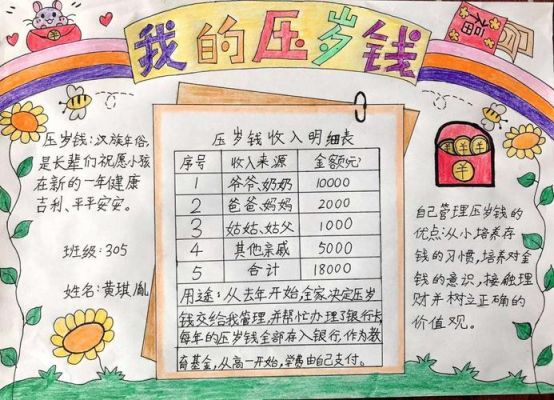 我的压岁钱
福
压岁钱:汉族年俗,
是长辈们祝愿小孩
在新的一年健康
吉利、平平安安。
班级:305
姓名:黄琪胤
压岁钱收入明细表
序号 收入来源 金额(元)
1 爷爷、奶奶 10000
2 爸爸、妈妈 2000
3 姑姑、姑父 1000
4 其他亲戚 5000
5 合计 18000
用途:从去年开始,全家决定压岁
钱交给我管理,并帮忙办理了银行卡,
每年的压岁钱全部存入银行,作为教
育基金,从高一开始,学费由自己支付。
羊 羊 羊
羊
自己管理压岁钱的
优点:从小培养存
钱的习惯,培养对金
钱的意识,接触理
财并树立正确的
价值观。